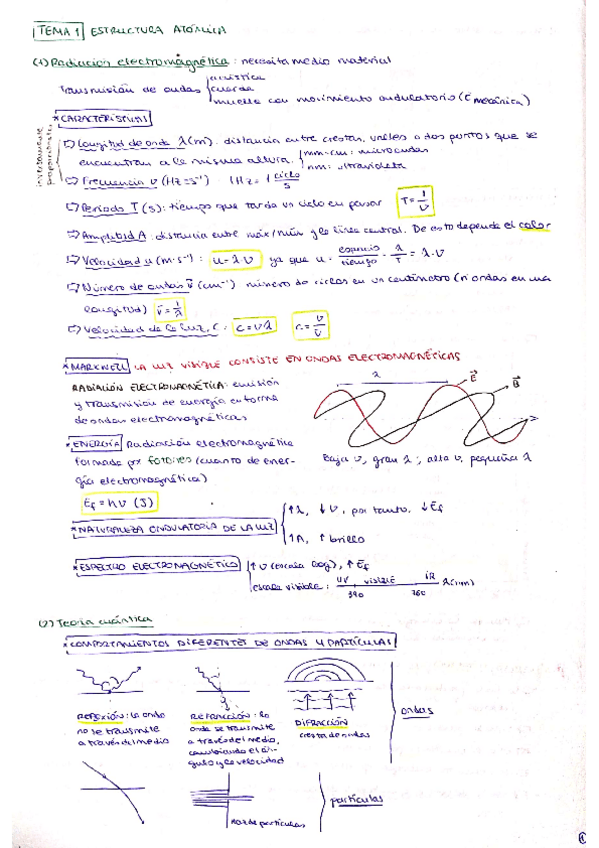 TEMA 1 ESTRUCTURA ATÓMICA
(1) Radiación electromagnética : necesita medio material
acústica
Transmisión de ondas cuerda
muelle con movimiento ondulatorio (E mecánica)
* CARACTERÍSTICAS
inversamente proporcionales
Longitud de onda λ(m) : distancia entre crestas, valles o dos puntos que se
encuentran a la misma altura. mm-cm : microondas
nm : ultravioleta
Frecuencia ν (Hz=s⁻¹) 1Hz = 1 ciclo/s
Período T (s): tiempo que tarda un ciclo en pasar T = 1/ν
Amplitud A : distancia entre máx/mín y la línea central. De esto depende el color
Velocidad u (m·s⁻¹) : u = λ·ν ya que u = espacio/tiempo = λ/T = λ·ν
Número de ondas ν̄ (cm⁻¹) número de ciclos en un centímetro (nº ondas en una
longitud) ν̄ = 1/λ
Velocidad de la luz, c : c = νλ
* MARXWELL LA LUZ VISIBLE CONSISTE EN ONDAS ELECTROMAGNÉTICAS
RADIACIÓN ELECTROMAGNÉTICA: emisión
y transmisión de energía en forma
de ondas electromagnéticas
λ E⃗ B⃗
* ENERGÍA Radiación electromagnética
formada por fotones (cuanto de ener-
gía electromagnética)
Baja ν, gran λ ; alta ν, pequeña λ
Ef = hν (J)
* NATURALEZA ONDULATORIA DE LA LUZ
↑λ, ↓ν, por tanto, ↓Ef
↑A, ↑ brillo
* ESPECTRO ELECTROMAGNÉTICO ↑ν (escala log), ↑Ef
escala visible : UV VISIBLE IR λ(nm)
390 760
(2) Teoría cuántica
* COMPORTAMIENTOS DIFERENTES DE ONDAS Y PARTÍCULAS
REFLEXIÓN : la onda
no se transmite
a través del medio
REFRACCIÓN : la
onda se transmite
a través del medio,
cambiando el án-
gulo y la velocidad
DIFRACCIÓN
cresta de ondas
ondas
haz de partículas
partículas
1